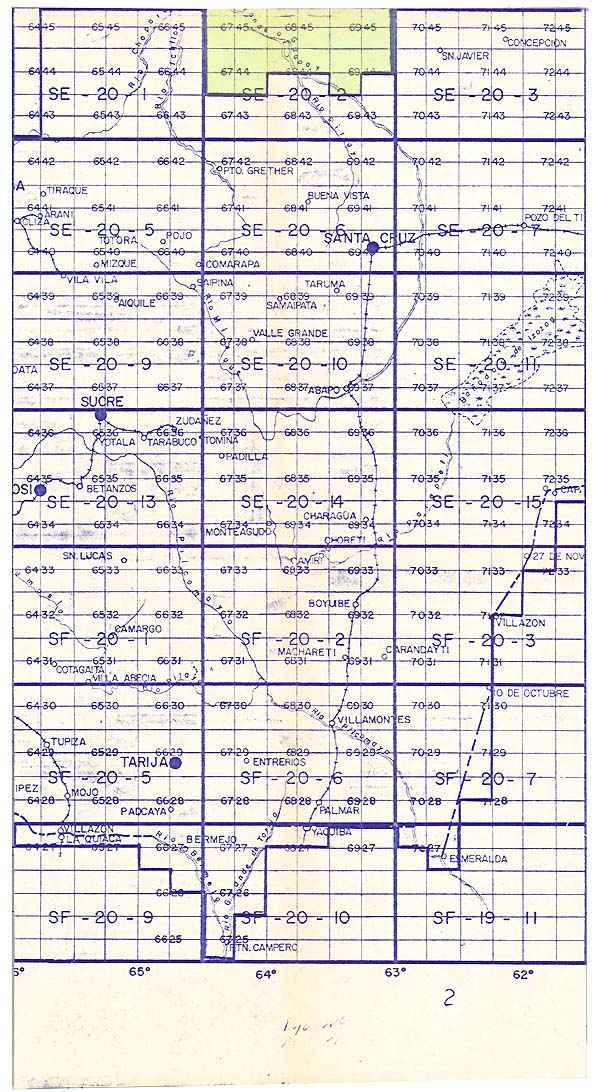 6445 6545 6645 6745 6845 6945 7045 7145 7245
Rio Chapare
Rio Ichilo
CONCEPCION
SN. JAVIER
6444 6544 6644 6744 6844 6944 7044 7144 7244
SE - 20 - 1 SE - 20 - 2 SE - 20 - 3
Rio Pirai
6443 6543 6643 6743 6843 6943 7043 7143 7243
6442 6542 6642 6742 6842 6942 7042 7142 7242
PTO. GRETHER
TIRAQUE BUENA VISTA
6441 6541 6641 6741 6841 6941 7041 7141 7241
ARANI
CLIZA POZO DEL TI
SE - 20 - 5 SE - 20 - 6 SE - 20 - 7
TOTORA POJO SANTA CRUZ
6440 6540 6640 6740 6840 6940 7040 7140 7240
MIZQUE COMARAPA
VILA VILA SAIPINA TARUMA
6439 6539 6639 6739 6839 6939 7039 7139 7239
AIQUILE SAMAIPATA
VALLE GRANDE
6438 6538 6638 6738 6838 6938 7038 7138 7238
SE - 20 - 9 SE - 20 - 10 SE - 20 - 11
Bañados de Izozog
DATA
6437 6537 6637 6737 6837 6937 7037 7137 7237
ABAPO
SUCRE
ZUDAÑEZ
6436 6536 6636 6736 6836 6936 7036 7136 7236
YOTALA TARABUCO TOMINA
PADILLA
6435 6535 6635 6735 6835 6935 7035 7135 7235
OSI BETANZOS CAP.
SE - 20 - 13 SE - 20 - 14 SE - 20 - 15
Rio Pilcomayo
CHARAGUA
6434 6534 6634 6734 6834 6934 7034 7134 7234
MONTEAGUDO
CHORETI
SN. LUCAS CAMIRI 27 DE NOV
6433 6533 6633 6733 6833 6933 7033 7133 7233
BOYUIBE
6432 6532 6632 6732 6832 6932 7032 7132
VILLAZON
CAMARGO
SF - 20 - 1 SF - 20 - 2 SF - 20 - 3
MACHARETI CARANDAYTI
6431 6531 6631 6731 6831 6931 7031 7131
COTAGAITA
VILLA ABECIA
10 DE OCTUBRE
6430 6530 6630 6730 6830 6930 7030 7130
Rio Pilcomayo
VILLAMONTES
TUPIZA
6429 6529 6629 6729 6829 6929 7029 7129
TARIJA ENTRERIOS
SF - 20 - 5 SF - 20 - 6 SF - 20 - 7
IPEZ MOJO
6428 6528 6628 6728 6828 6928 7028 7128
PADCAYA PALMAR
VILLAZON YAQUIBA
LA QUIACA BERMEJO
Rio Bermejo
Rio Grande de Tarija
6427 6527 6727 6827 6927 7027
ESMERALDA
6626 6726
SF - 20 - 9 SF - 20 - 10 SF - 19 - 11
6625 6725
FTN. CAMPERO
65° 64° 63° 62°
2